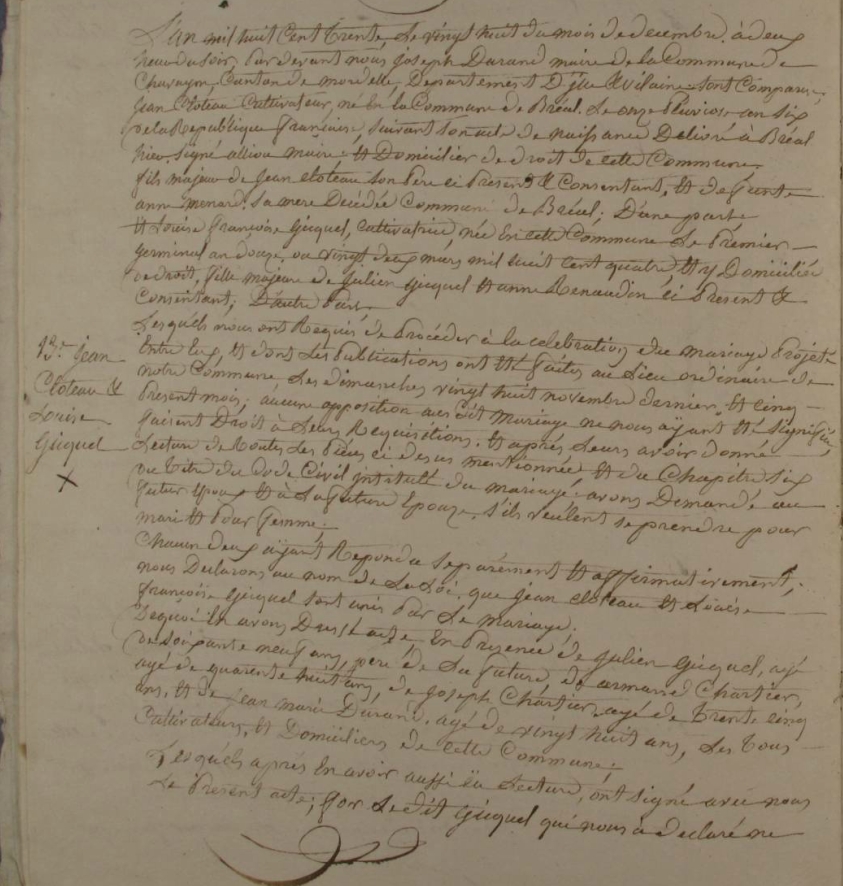 L'an mil huit Cent trente Le vingt huit du mois de decembre, à deux
heur du Soir, Pardevant nous joseph Durand maire de la Commune de
Chavagne, Canton de mordelle, Departement D'jlle & Vilaine Sont Comparu,
jean Cloteau Cultivateur, né En la Commune de Bréal Le onze Pluviose an Six
de la Republique française, Suivant Son acte de naissance Delivré à Bréal
hier signé alliou maire, et Domicilier de droit de cette Commune
fils majeur de jean Cloteau Son Pere ci Present & Consentant, et de funte
anne menard, Sa mere Decédée Commune de Bréal; D'une parte
et Louise françoise Gicquel, Cultivatrice, née En cette Commune Le Premier
germinal an douze, ou vingt deux mars mil huit Cent quatre et y Domiciliée
de droit, fille majeure de julien Gicquel et anne Renaudin ci Present &
Consentant; D'autre Part.
Lesquels nous ont Requis de Procéder à la celebration du mariage Projeté
Entre Eux, et dont Les Publications ont Eté faites au Lieu ordinaire de
notre Commune, Les dimanches vingt huit novembre dernier, et Cinq
Present mois; aucune opposition au dit Mariage ne nous ayant Eté Signifiée,
faisant Droit à Leurs Requisitions, et après Leurs avoir donné
Lecture de toutes Les Pièces ci desus mentionnée et du Chapitre Six
du titre du Code Civil jntitulé du mariage avons Demandé au
futur Epoux et à La future Epouze, s'ils veulent se prendre pour
mari et Pour femme;
Chacun deux ayant Repondu Separément et affirmativement,
nous Declarons au nom de La Loi, que jean Cloteau et Louise
françoise Gicquel Sont unis Par Le mariage.
Dequoi En avons Dressé acte En Presence de julien Gicquel, agé
de Soixante neuf ans, père de La future, de armand Chartier,
agé de quarente huit ans, de joseph Chartier agé de trente cinq
ans, et de jean marie Durand, agé de vingt huit ans, Les tous
Cultivateurs, et Domiciliers de cette Commune;
Lesquels après En avoir aussi Eu Lecture, ont signé avec nous
Le Present acte; for Le dit Gicquel qui nous à declaré ne
13.e jean
Cloteau &
Louise
Gicquel
X